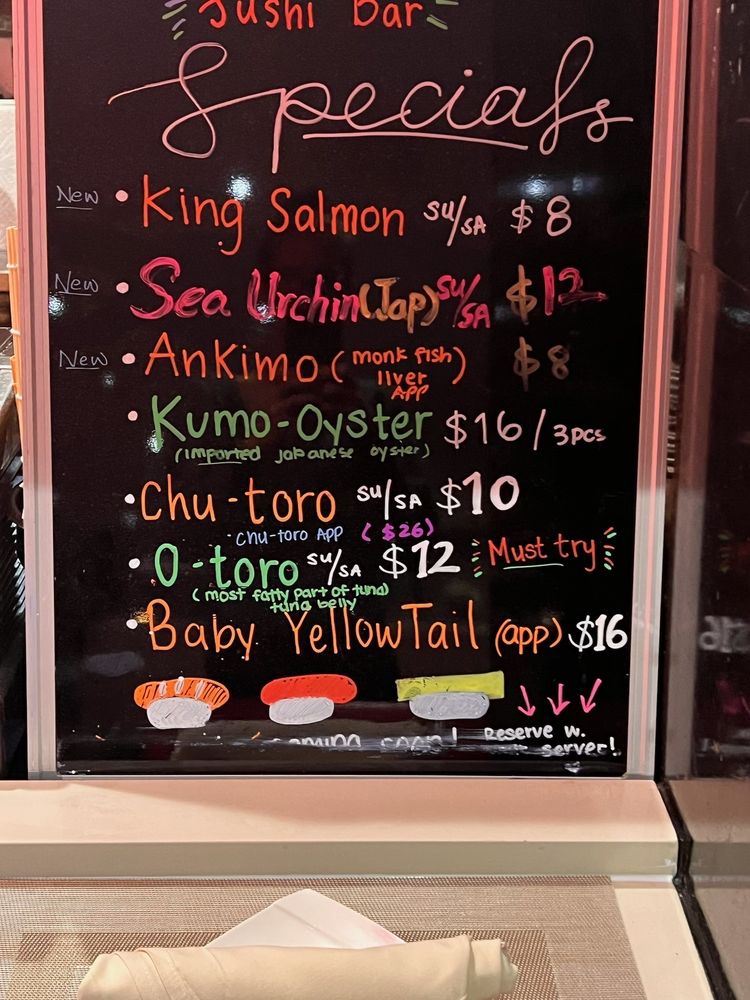 Sushi Bar
Specials
New • King Salmon su/SA $8
New • Sea Urchin (Jap) su/SA $12
New • Ankimo (monk fish) $8
liver
APP
• Kumo-Oyster $16/3pcs
(imported japanese oyster)
• Chu-toro su/SA $10
chu-toro APP ($26)
• O-toro su/SA $12 Must try
(most fatty part of tuna)
tuna belly
• Baby YellowTail (app) $16
coming soon! Reserve w.
server!